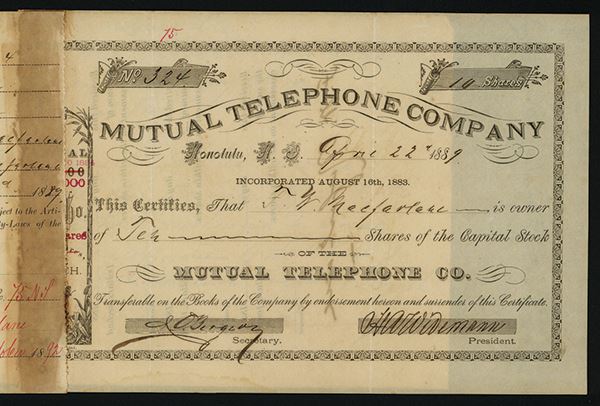 75
No. 324
10 Shares
MUTUAL TELEPHONE COMPANY
Honolulu, H. I. April 22nd 1889
INCORPORATED AUGUST 16th, 1883.
This Certifies, That F W Macfarlane is owner
of Ten Shares of the Capital Stock
OF THE
MUTUAL TELEPHONE CO.
Transferable on the Books of the Company by endorsement hereon and surrender of this Certificate.
Secretary.
H A Widemann
President.
1889
ject to the Arti-
y-Laws of the
75
1892